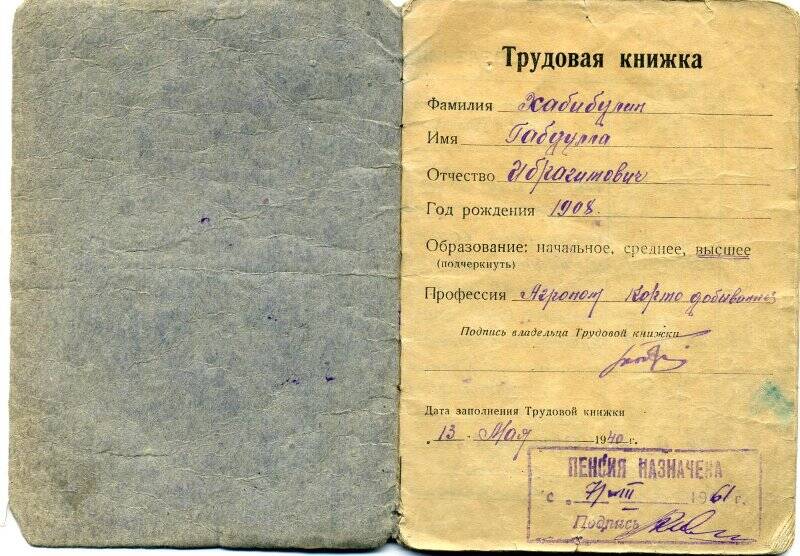 Трудовая книжка
Фамилия Хабибулин
Имя Габдулла
Отчество Ибрагимович
Год рождения 1908.
Образование: начальное, среднее, высшее
(подчеркнуть)
Профессия Агроном Кормодобывание
Подпись владельца Трудовой книжки
Дата заполнения Трудовой книжки
„ 13 . Мая 1940 г.
ПЕНСИЯ НАЗНАЧЕНА
с „ 7 VIII 1961 г.
Подпись